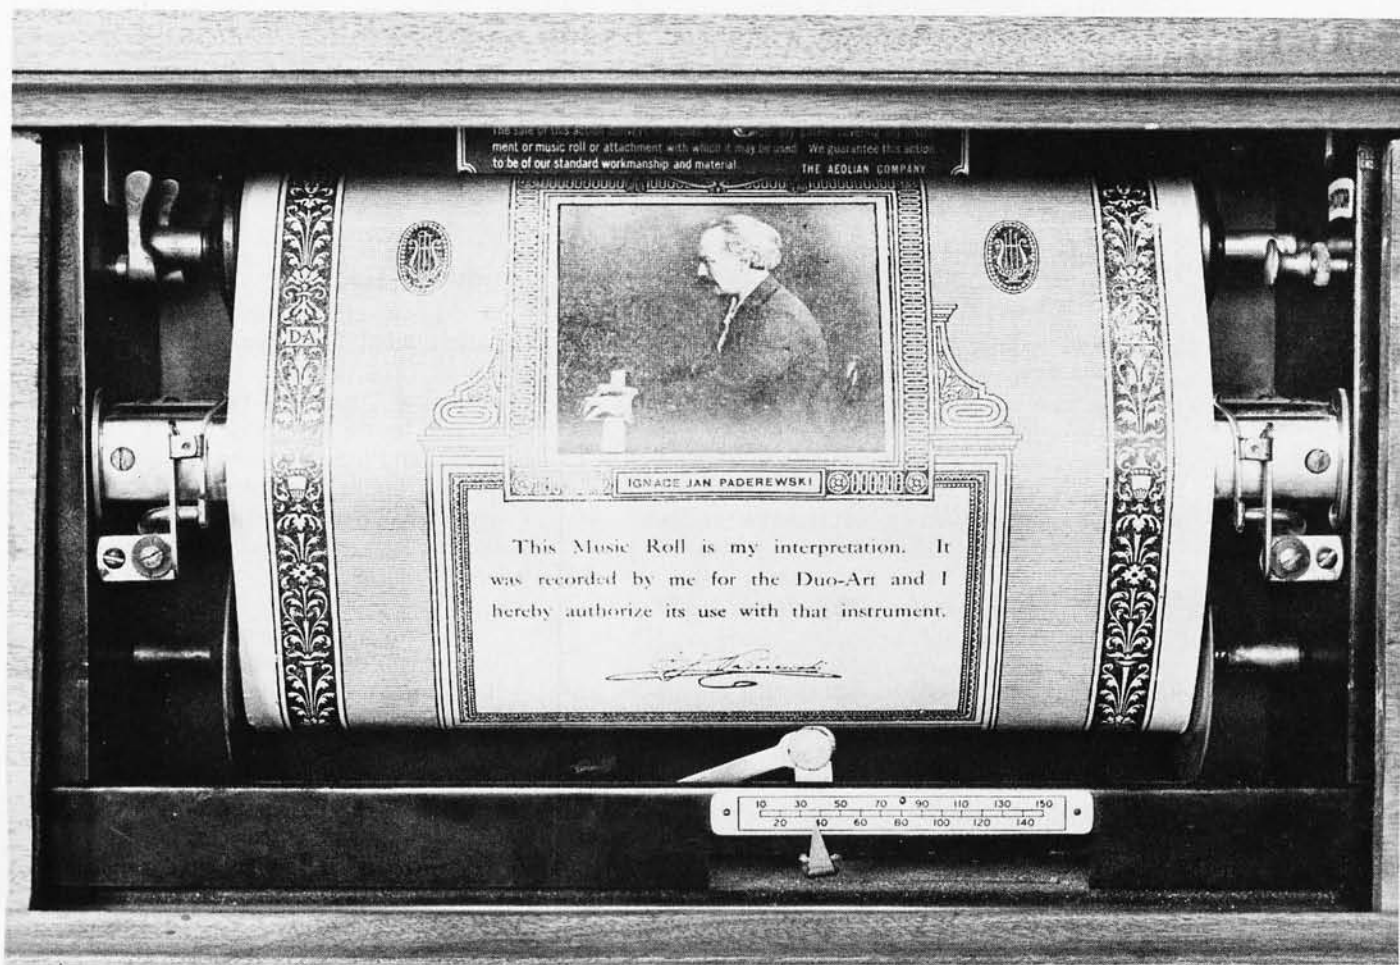 The sale of this action conveys
ment or music roll or attachment with which it may be used We guarantee this action
to be of our standard workmanship and material.
THE AEOLIAN COMPANY
D·A
IGNACE JAN PADEREWSKI
This Music Roll is my interpretation. It
was recorded by me for the Duo-Art and I
hereby authorize its use with that instrument.
10 30 50 70 90 110 130 150
20 40 60 80 100 120 140